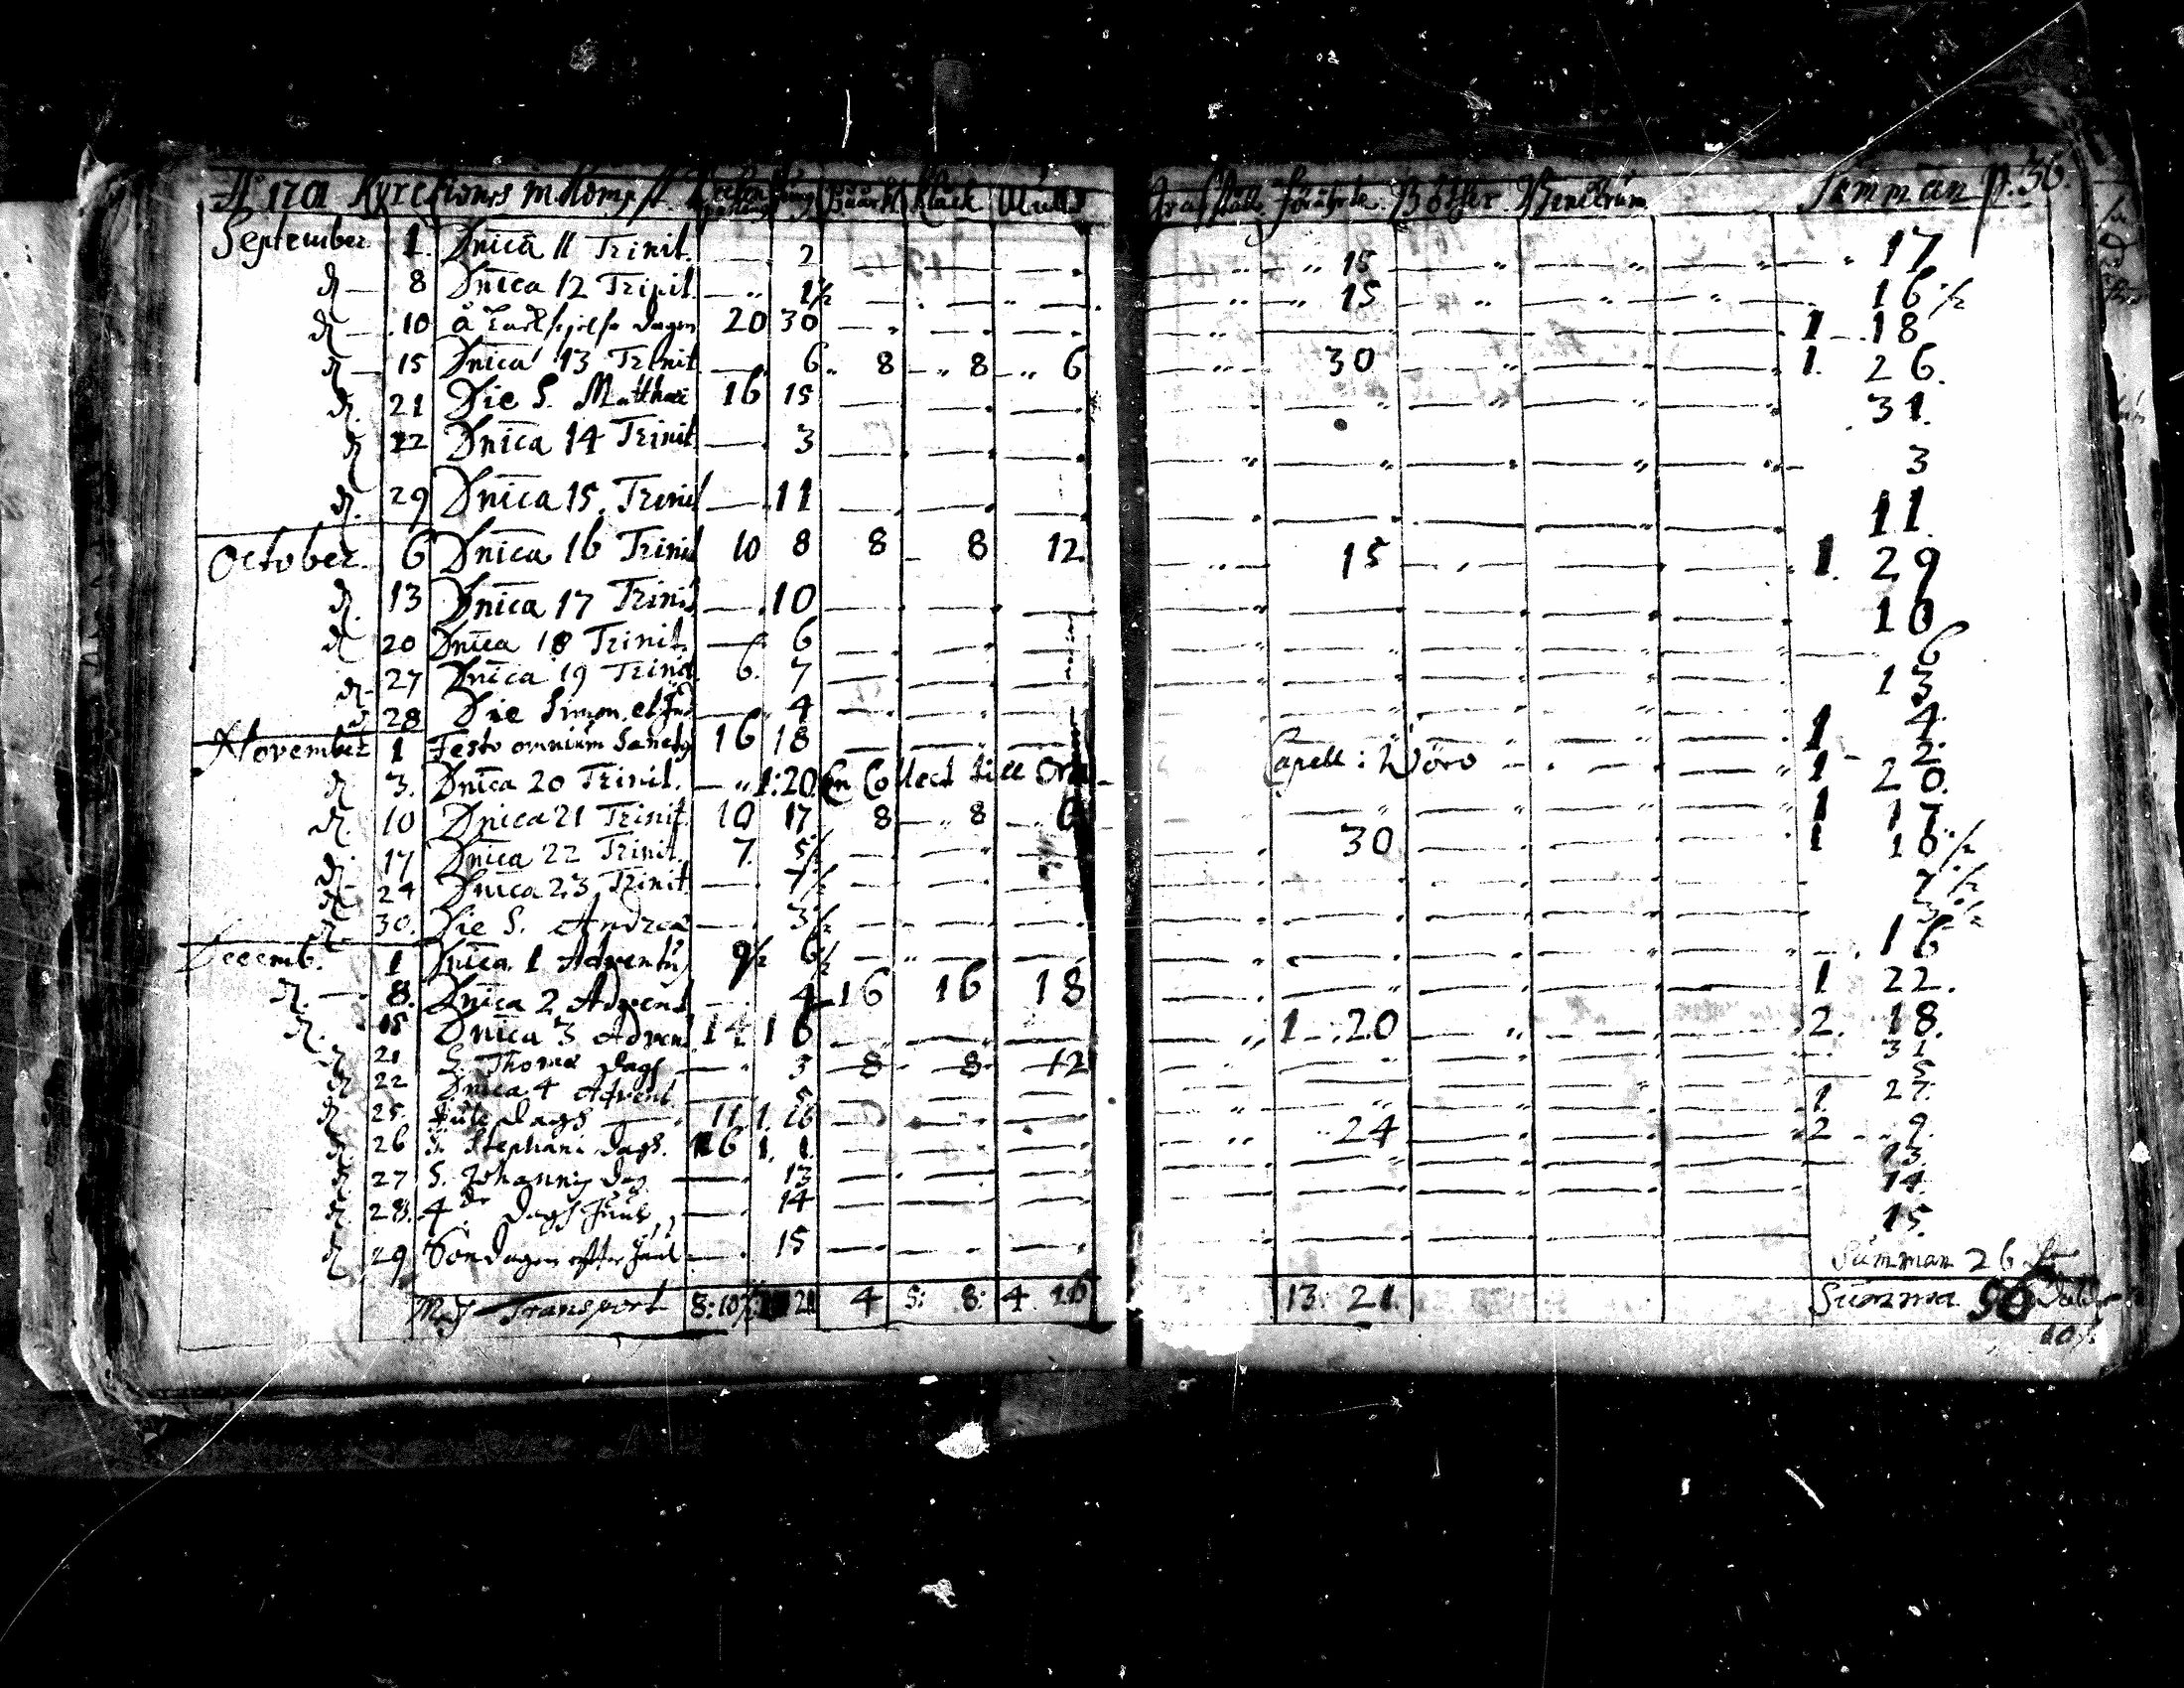 Ao 1701 Kyrckiones Inkomst Summan p. 36.
September 1. Dnica 11 Trinit. — 2 — — — — 15 — — — 17
d — 8 Dnica 12 Trinit. — 1½ — — — — 15 — — — 16 ½
d — 10 å Tacksäijelse dagen 20 30 — — — — — — — — 1 18
d — 15 Dnica 13 Trinit — 6 8 8 6 — 30 — — — 1. 26.
d. 21 Die S. Matthæi 16 15 — — — — — — — — 31.
d 22 Dnica 14 Trinit — 3 — — — — — — — — 3
d. 29 Dnica 15. Trinit — 11 — — — — — — — — 11.
October. 6 Dnica 16 Trinit 10 8 8 8 12 — 15 — — — 1. 29
d. 13 Dnica 17 Trinit — 10 — — — — — — — — 10
d 20 Dnica 18 Trinit. — 6 — — — — — — — — 6
d. 27 Dnica 19 Trinit 6. 7 — — — — — — — — 13
d 28 Die Simon. et Jud — 4 — — — — — — — — 4.
November 1 Festo omnium Sanct 16 18 — — — — — — — — 1 2.
d 3. Dnica 20 Trinit. — 1:20 En Collect till Capell: Wörо — — — 1 20.
d. 10 Dnica 21 Trinit. 10 17 8 8 6 — — — — — 1 17.
d. 17 Dnica 22 Trinit. 7. 5½ — — — — 30 — — — 1 10 ½
d. 24 Dnica 23 Trinit — 7½ — — — — — — — — 7 ½
d. 30. Die S. Andreæ — 3½ — — — — — — — — 3 ½
Decemb. 1 Dnica. 1 Adventus 9½ 6½ — — — — — — — — 16
d. — 8. Dnica 2 Advent — 4 16 16 18 — — — — — 1 22.
d. 15 Dnica 3 Advent 14 16 — — — — 1 20 — — — 2. 18.
d 21 S. Thomæ dagh — 3 8 8 12 — — — — — 31
d 22 Dnica 4 Advent — 5 — — — — — — — — 5
d 25. Jule dagh 11 1. 16 — — — — — — — — 1. 27.
d. 26 S. Stephani dagh. 16 1. 1. — — — — 24 — — — 2 9.
d 27 S. Johannis dag — 13 — — — — — — — — 13.
d. 28. 4de dagh Juul — 14 — — — — — — — — 14.
d 29 Söndagen efter Juul — 15 — — — — — — — — 15.
Summan 26
Transport 8:10½ 21 4 5: 8: 4 26 13: 21. Summa 56 Daler
10½